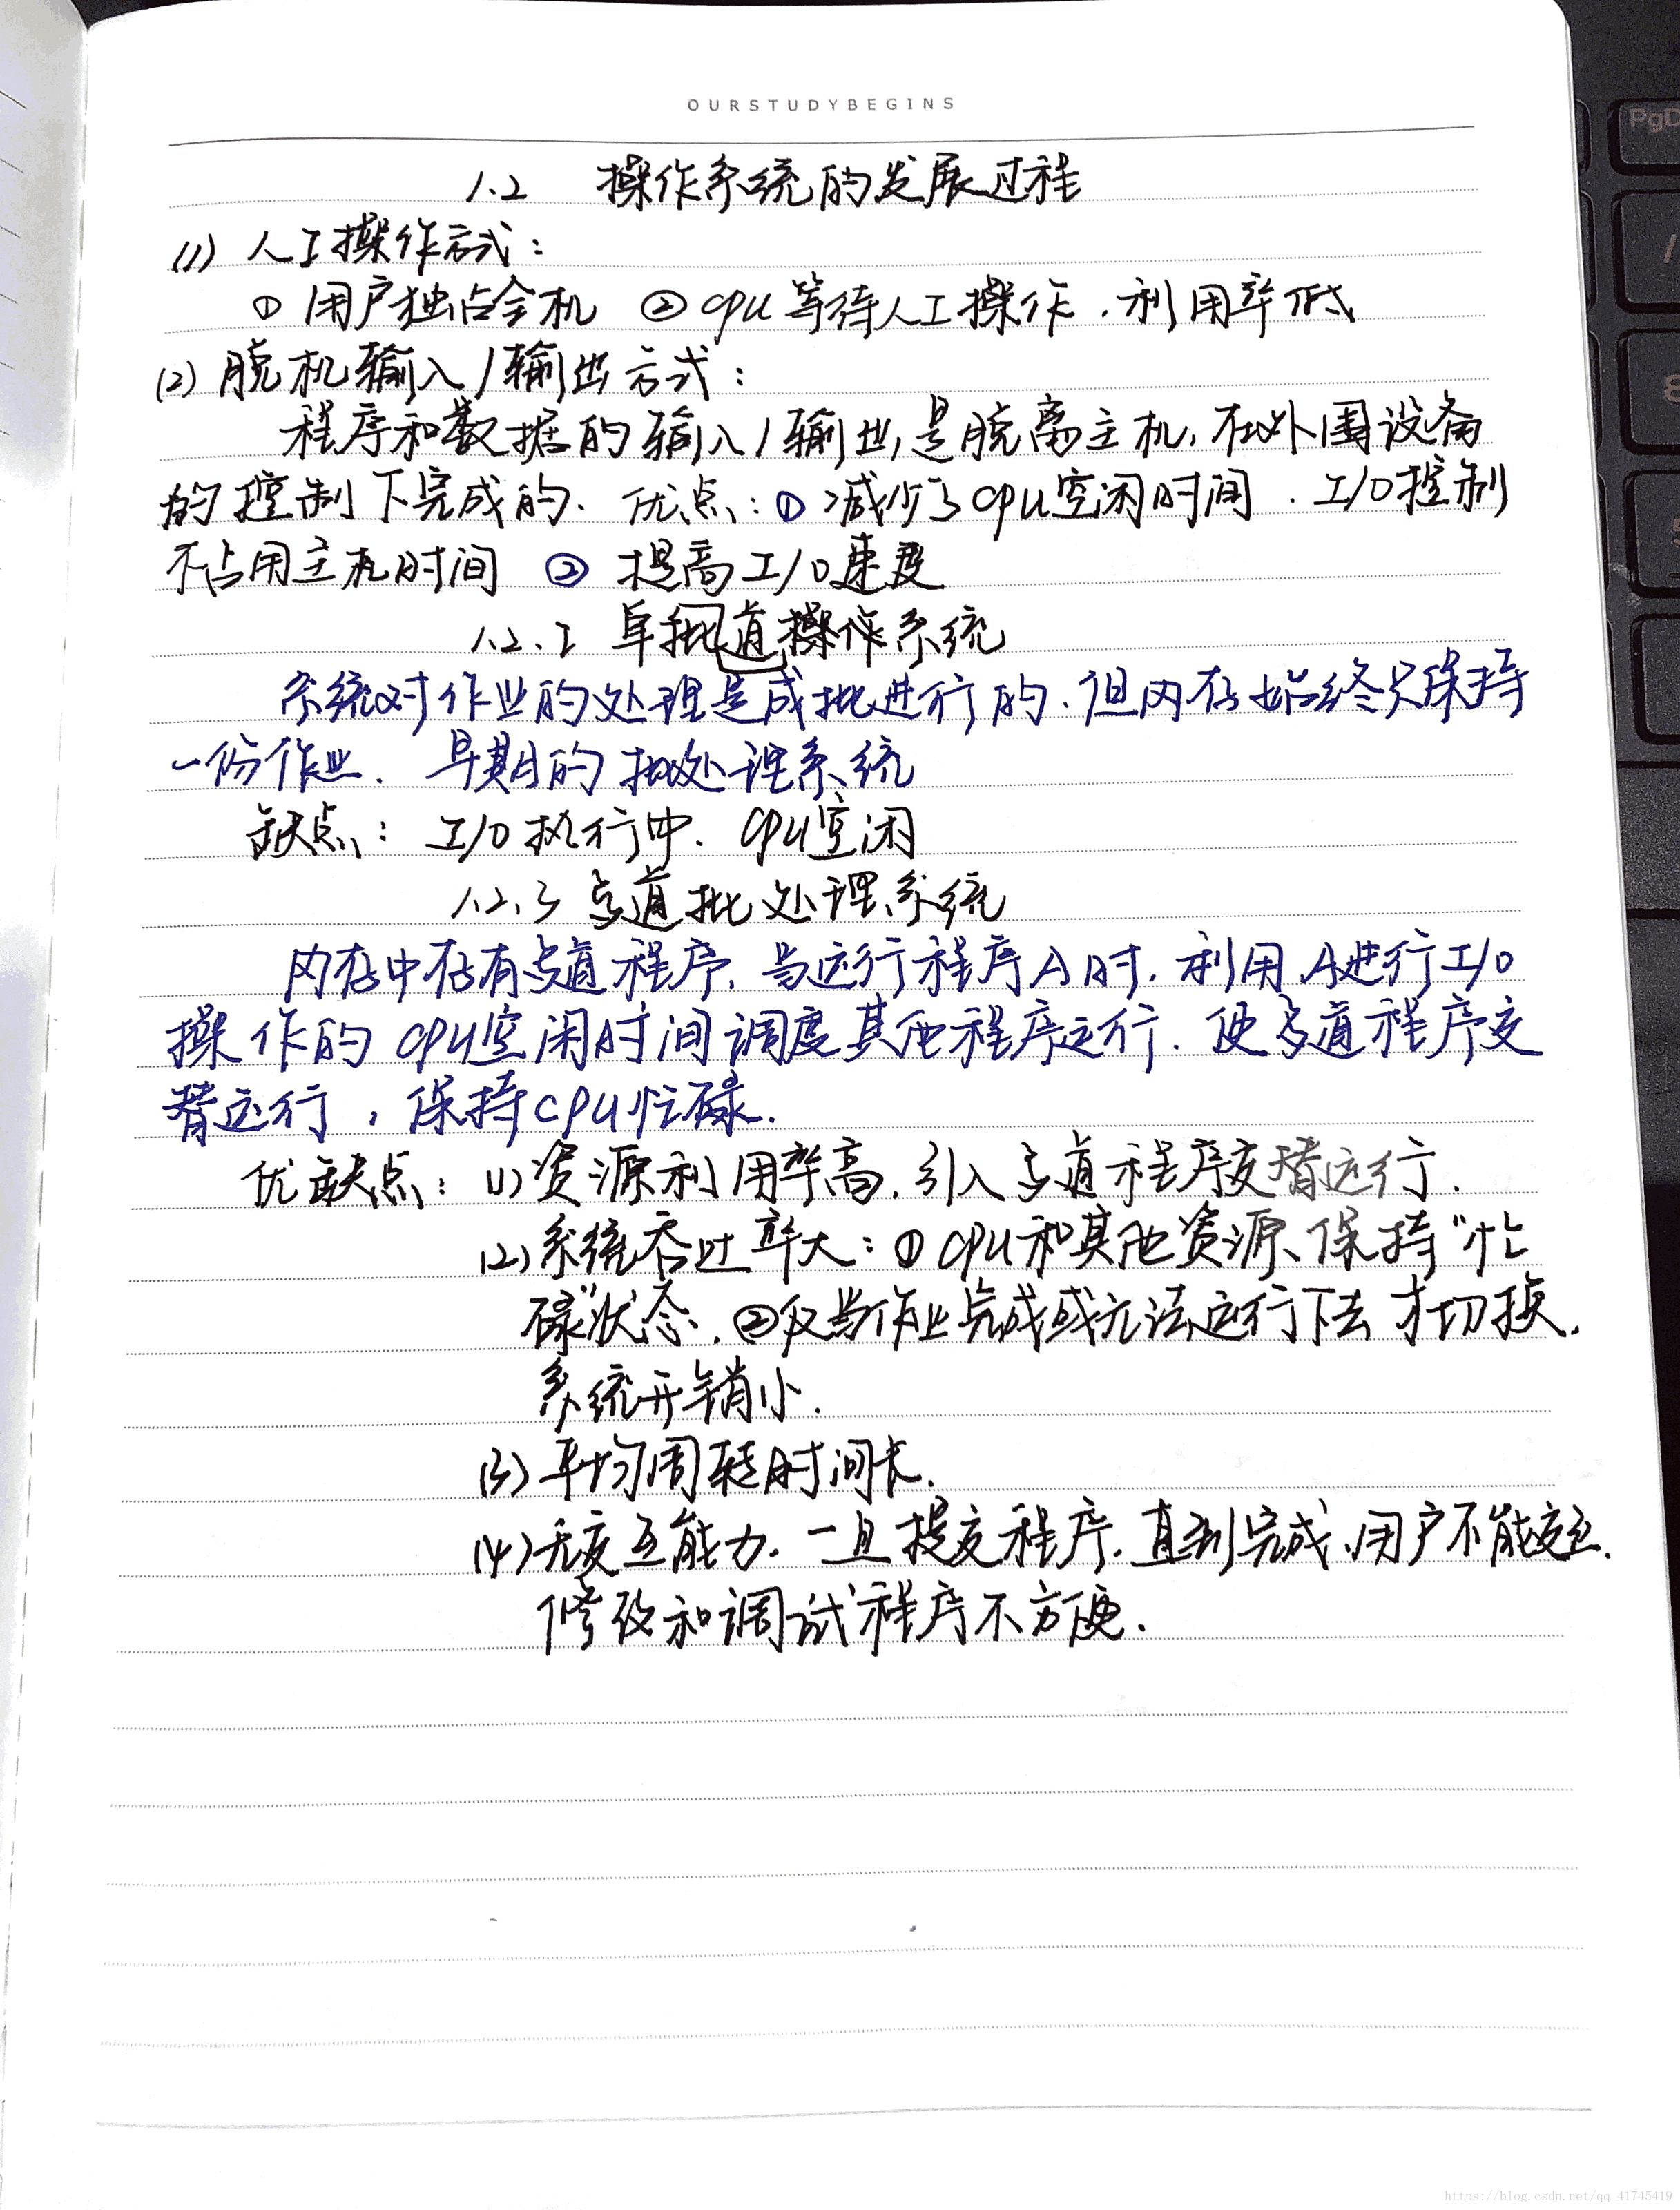 OURSTUDYBEGINS
1.2 操作系统的发展过程
(1) 人工操作方式：
① 用户独占全机 ② cpu等待人工操作，利用率低
(2) 脱机输入/输出方式：
程序和数据的输入/输出是脱离主机，在外围设备
的控制下完成的. 优点：① 减少了cpu空闲时间. I/O控制
不占用主机时间 ② 提高I/O速度
1.2.2 单批道操作系统
系统对作业的处理是成批进行的，但内存始终只保持
一份作业. 早期的批处理系统
缺点：I/O执行中. cpu空闲
1.2.3 多道批处理系统
内存中存有多道程序，当运行程序A时，利用A进行I/O
操作的cpu空闲时间调度其他程序运行. 使多道程序交
替运行，保持CPU忙碌.
优缺点：(1)资源利用率高，引入多道程序交替运行.
(2)系统吞吐率大：①cpu和其他资源保持"忙
碌"状态，②仅当作业完成或无法运行下去才切换，
系统开销小.
(3)平均周转时间长.
(4)无交互能力. 一旦提交程序，直到完成，用户不能交互.
修改和调试程序不方便.
PgD
/
8
5
https://blog.csdn.net/qq_41745419